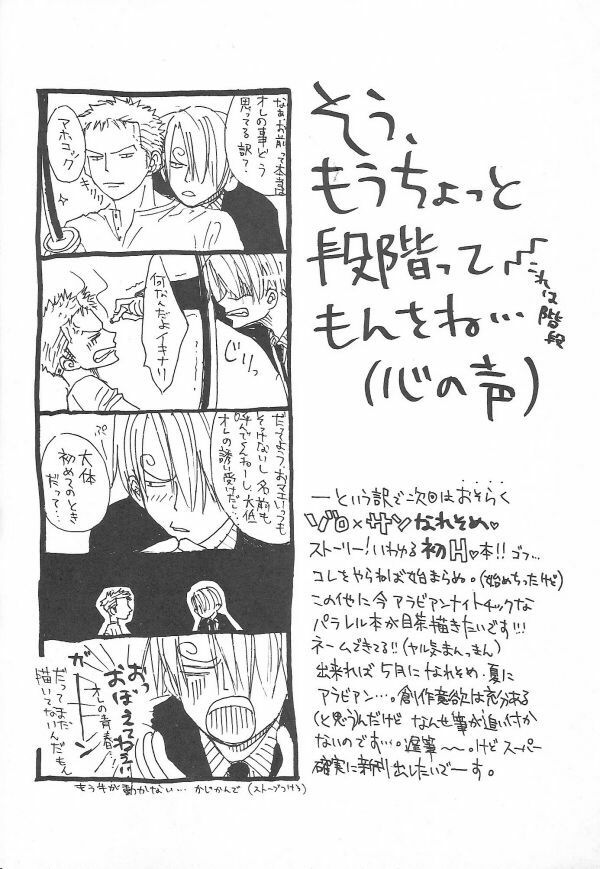 なぁ、お前って本当は
オレの事どう
思ってる訳?
アホコック
きりっ
何なんだよ
イキナリ
じりっ
だってよう、オマエいっつも
そっけないし 名前も
呼んでくんねーし、大体
オレの誘い受けだし…
ぷ
大体
初めてのとき
だって…
おっ
おぼえてねぇ!!
オレの青春…!
ガーーン
だってまだ
描いてないんだもん
もう手が動かない… かじかんで (ストーブつけろ)
そう、
もうちょっと
段階って
もんをね…
これは階段
(心の声)
ーという訳で次回はおそらく
ゾロ×サンなれそめ♥
ストーリー!いわゆる初H♥本!!ゴフ…
コレをやらねば始まらぬ。(始めちったけど)
この他に今アラビアンナイトチックな
パラレル本が目茶描きたいです!!!
ネームできてる!!(ヤル気まんまん)
出来れば5月になれそめ、夏に
アラビアン…。創作意欲は充分ある
(と思う)んだけど なんせ筆が追い付か
ないのです…。遅筆〜〜。けどスーパー
確実に新刊出したいでーす。